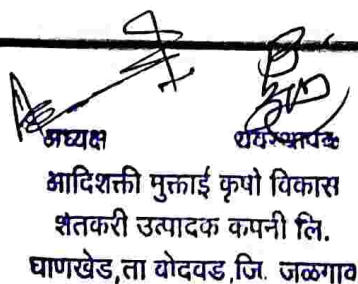 अध्यक्ष व्यवस्थापक
आदिशक्ती मुक्ताई कृषी विकास
शेतकरी उत्पादक कंपनी लि.
घाणखेड,ता बोदवड,जि. जळगाव